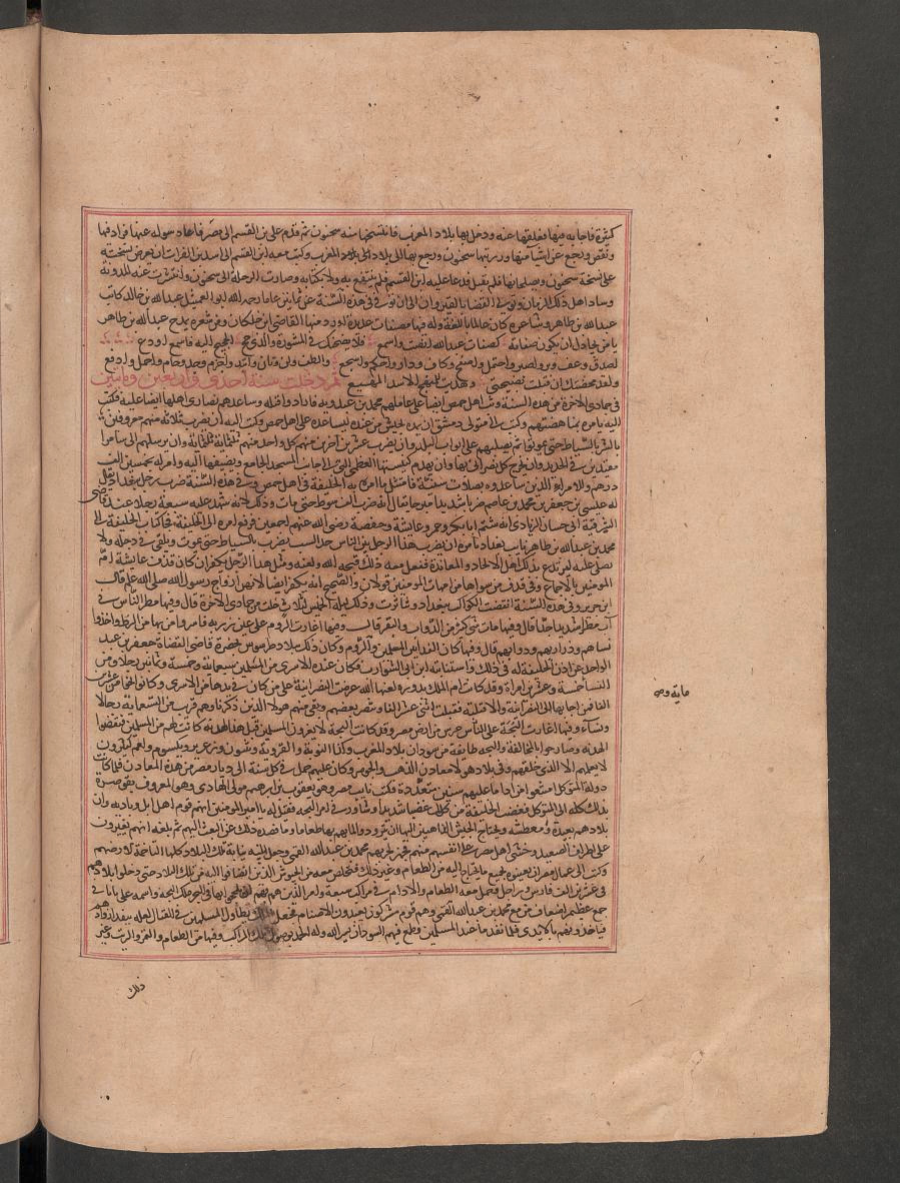 كثيرة فاجابه عنها فعلقها عنه ودخل بها بلاد المغرب فانتسخها منه سحنون ثم قدم على بن القسم الى مصر فاعاد سوله عنها فزاد فيها
ونقص ورجع عن اشيا منها ورتبها سحنون ورجع بها الى بلاد المغرب وكتب معه ابن القسم الى اسد بن الفرات ان يعرض نسخته
على نسخة سحنون ويصلحها بها فلم يقبل فدعا عليه ابن القسم فلم ينتفع به ولا بكتابه وصارت الرحلة الى سحنون وانتشرت عنه المدونة
وساد اهل ذلك الزمان وتوفي في هذه السنة عن ثمانين عاما رحمه الله ابو العميثل عبد الله بن خالد كاتب
عبد الله بن طاهر وشاعره كان عالما باللغة وله فيها مصنفات عديدة اورد منها القاضي ابن خلكان ومن شعره يمدح عبد الله بن طاهر
يا من يحاول ان يكون صفاته كصفات عبد الله انصت واسمع فلا نصحتك في المشورة والذي حج الحجيج اليه فاسمع او دع
اصدق وعف وبر واصبر واحتمل واصفح وكاف ودار واحلم واشجع والطف ولن وتان وارفق واتئد واحزم وجد وحام واحمل وادفع
ولقد محضتك ان قبلت نصيحتي وهديت للنهج الاسد المهيع ثم دخلت سنة احدى واربعين ومايتين
في جمادى الاخرة من هذه السنة وثب اهل حمص ايضا على عاملهم محمد بن عبدويه فارادوا قتله وساعدهم نصارى اهلها ايضا عليه فكتب
اليه يامره بمناهضتهم وكتب الى متولى دمشق ان يمده بجيش من عنده ليساعده على اهل حمص وكتب اليه ان يضرب ثلاثة منهم معروفين
بالشر بالسياط حتى يموتوا ثم يصلبهم على ابواب البلد وان يضرب عشرين اخرين منهم كل واحد منهم ثلثماية ثلثماية وان يرسلهم الى سامرا
مقيدين في الحديد وان يخرج كل نصراني بها وان يهدم كنيستها العظمى التي الى جانب المسجد الجامع ويضيفها اليه وامر له بخمسين الف
درهم وللامراء الذين ساعدوه بصلات سنية فامتثل ما امره به الخليفة في اهل حمص وفي هذه السنة ضرب رجل ببغداد يقال
له عيسى بن جعفر بن محمد بن عاصم ضربا شديدا مبرحا يقال انه ضرب الف سوط حتى مات وذلك لانه شهد عليه سبعة عشر رجلا عند قاضي
الشرقية ابي حسان الزيادي انه شتم ابا بكر وعمر وعائشة وحفصة رضي الله عنهم اجمعين فرفع امره الى الخليفة فجا كتاب الخليفة الى
محمد بن عبد الله بن طاهر نايب بغداد يامره ان يضرب هذا الرجل بين الناس حد السب ثم يضرب بالسياط حتى يموت ويلقى في دجلة ولا
يصلى عليه ليرتدع بذلك اهل الالحاد والمعاندة ففعل معه ذلك قبحه الله ولعنه ومثل هذا الرجل يكفر ان كان قذف عايشة ام
المومنين بالاجماع وفي قذف من سواها من امهات المومنين قولان والصحيح انه يكفر ايضا لانهن ازواج رسول الله صلى الله عليه وسلم قال
ابن جرير وفي هذه السنة انقضت الكواكب ببغداد وتناثرت وذلك ليلة الخميس لثلاث خلت من جمادى الاخرة قال وفيها مطر الناس في
آب مطرا شديدا جدا قال وفيها مات شي كثير من الدواب والبقر قال وفيها اغارت الروم على عين زربه فاسروا من بها من الزط واخذوا
نساهم وذراريهم ودوابهم قال وفيها كان الفدا بين المسلمين والروم وكان ذلك ببلاد طرسوس بحضرة قاضي القضاة جعفر بن عبد
الواحد عن اذن الخليفة له في ذلك واستنابته ابن ابي الشوارب فكان عدة الاسرى من المسلمين سبعماية وخمسة وثمانين رجلا ومن
النسا خمسة وعشرين امراة وقد كانت ام الملك تدوره لعنها الله عرضت النصرانية على من كان في يدها من الاسرى وكانوا نحوا من عشرين
الفا فمن اجابها الى النصرانية والا قتلته فقتلت اثني عشر الفا وتنصر بعضهم وبقي منهم هولا الذين ذكرناهم قريب من التسعماية رجالا
ونساء وفيها اغارت البجة على الناس حرس من ارض مصر وقد كانت البجة لا يغزون المسلمين قبل هذا لهدنة كانت لهم من المسلمين فنقضوا
الهدنة وصارحوا بالمخالفة والبجه طايفة من سودان بلاد المغرب وكذا النوبة وامم كثيرون
لا يعلمهم الا الذي خلقهم وفي بلاد هولا معادن الذهب والجوهر وكان عليهم حمل في كل سنة الى ديار مصر من هذه المعادن فلما كانت
دولة المتوكل امتنعوا من ادا ما عليهم سنين متعددة فكتب نايب مصر وهو يعقوب بن ابرهيم مولى الهادي وهو المعروف بقوصرة
بذلك كله الى المتوكل فغضب الخليفة من ذلك غضبا شديدا وشاور في امر البجه فقيل له يا امير المومنين انهم قوم اهل ابل وباديه وان
بلادهم بعيدة ومعطشة ويحتاج الجيش الذاهبين اليها ان يتزودوا لمقامهم بها طعاما وما فصده ذلك عن البعث اليهم ثم بلغه انهم يغيرون
على اطراف الصعيد وخشي اهل مصر على انفسهم منهم فجهز لحربهم محمد بن عبد الله القمي وجعل اليه نيابة تلك البلاد كلها المتاخمة لارضهم
وكتب الى عمال مصر ان يعينوه بجميع ما يحتاج اليه من الطعام وغير ذلك فتخلص معه من الجيوش الذين انضافوا اليه من تلك البلاد حتى دخلوا بلادهم
في عشرين الف فارس وراجل وحمل معه الطعام والادام في مراكب سبعة وامر الذين هم بها
جمع عظيم اضعاف من مع محمد بن عبد الله القمي وهم قوم مشركون يعبدون الاصنام فجعل الملك يطاول المسلمين في القتال لعله ينفد ازوادهم
فياخذونهم بالايدي فلما نفد ما عند المسلمين وطمع فيهم السودان يسر الله وله الحمد بوصول تلك المراكب وفيها من الطعام والتمر والزيت وغير
ماية ومن
ذلك